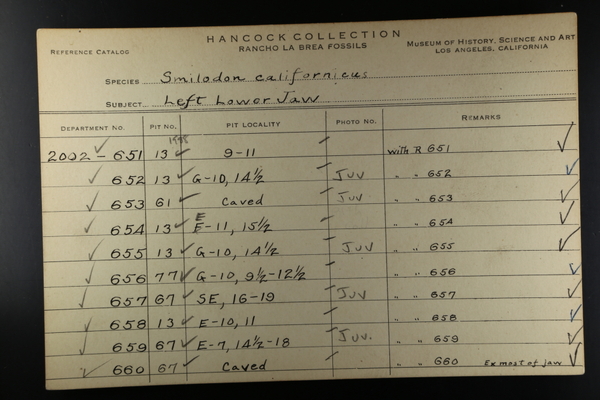 HANCOCK COLLECTION
REFERENCE CATALOG RANCHO LA BREA FOSSILS MUSEUM OF HISTORY, SCIENCE AND ART
LOS ANGELES, CALIFORNIA
SPECIES Smilodon californicus
SUBJECT Left Lower Jaw
DEPARTMENT NO. PIT NO. PIT LOCALITY PHOTO NO. REMARKS
2002 - 651 13 9-11 with R 651
652 13 G-10, 14½ Juv " " 652
653 61 Caved Juv " " 653
E
654 13 E-11, 15½ " " 654
655 13 G-10, 14½ Juv " " 655
656 77 G-10, 9½-12½ " " 656
657 67 SE, 16-19 Juv " " 657
658 13 E-10, 11 " " 658
659 67 E-7, 14½-18 Juv. " " 659
660 67 Caved " " 660 Ex most of jaw